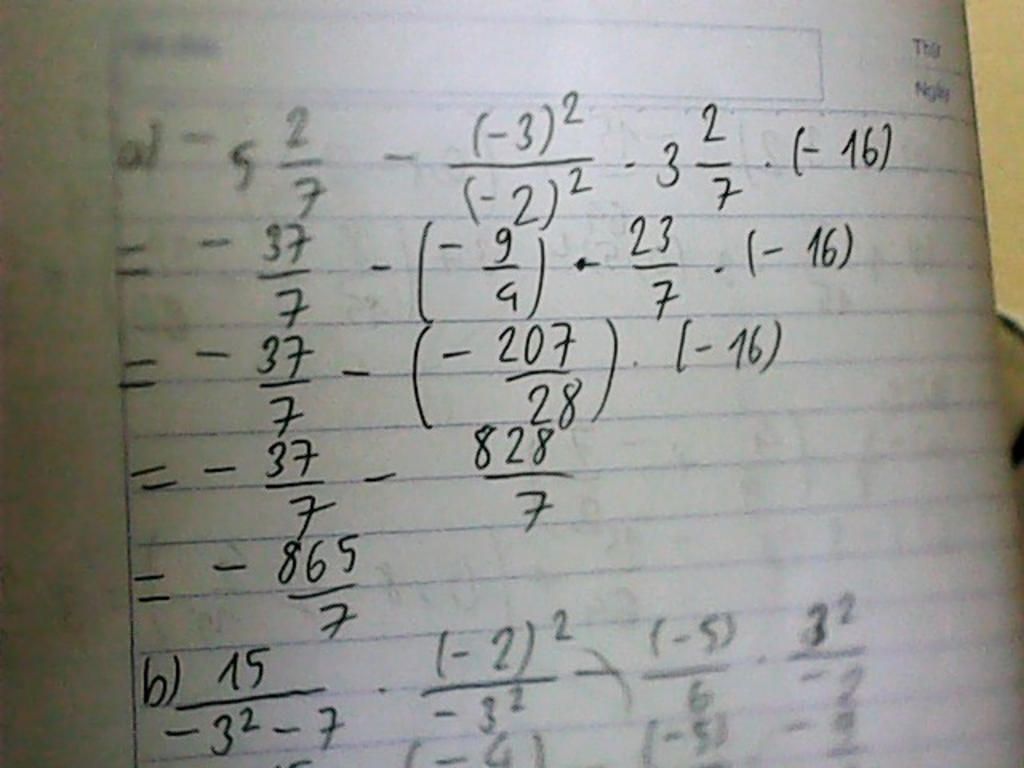 Thứ
Ngày
a) - 5 2/7 - (-3)²/(-2)² . 3 2/7 . (- 16)
= - 37/7 - (- 9/4) . 23/7 . (- 16)
= - 37/7 - (- 207/28) . (- 16)
= - 37/7 - 828/7
= - 865/7
b) 15/(-3² - 7) . (-2)²/-3² - (-5)/6 . 3²/-2